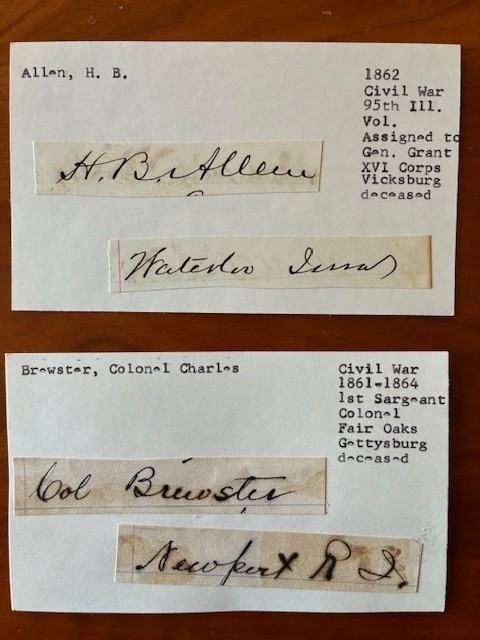 Allen, H. B.
1862
Civil War
95th Ill.
Vol.
Assigned to
Gen. Grant
XVI Corps
Vicksburg
deceased
H. B. Allen
Waterloo Iowa
Brewster, Colonel Charles
Civil War
1861-1864
1st Sargeant
Colonel
Fair Oaks
Gettysburg
deceased
Col Brewster
Newport R I.